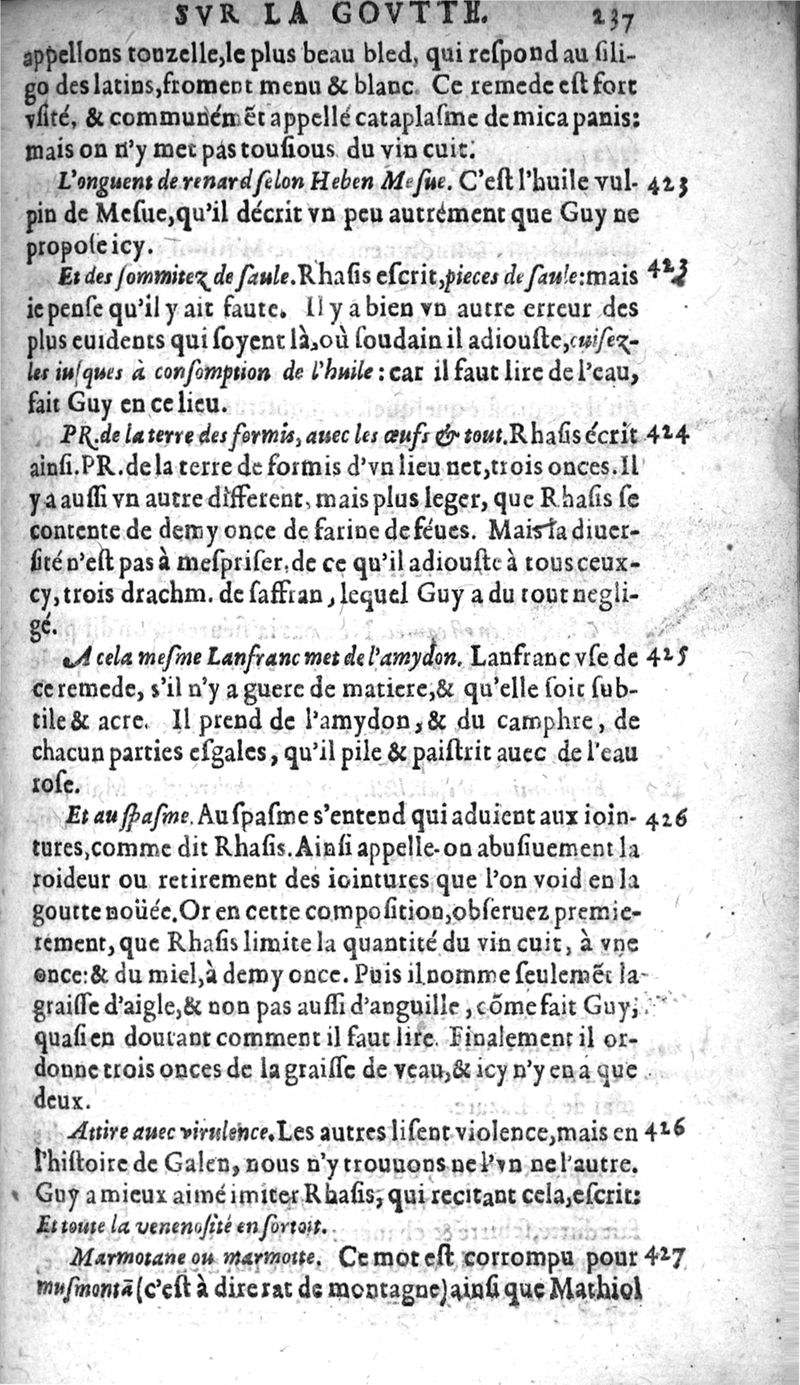 SVR LA GOVTTE. 237
appellons touzelle,le plus beau bled, qui reſpond au ſili-
go des latins,froment menu & blanc. Ce remede eſt fort
vſité, & communémẽt appellé cataplaſme de mica panis:
mais on n'y met pas touſious du vin cuit.
L'onguent de renard ſelon Heben Meſue. C'eſt l'huile vul- 423
pin de Meſue,qu'il décrit vn peu autrément que Guy ne
propoſe icy.
Et des ſommitez de ſaule. Rhaſis eſcrit,pieces de ſaule:mais 423
ie penſe qu'il y ait faute. Il y a bien vn autre erreur des
plus euidents qui ſoyent là,où ſoudain il adiouſte,cuiſez-
les iuſques à conſomption de l'huile: car il faut lire de l'eau,
fait Guy en ce lieu.
PR. de la terre des formis, auec les œufs & tout. Rhaſis écrit 424
ainſi.PR.de la terre de formis d'vn lieu net,trois onces.Il
y a auſſi vn autre different, mais plus leger, que Rhaſis ſe
contente de demy once de farine de féues. Mais la diuer-
ſité n'eſt pas à meſpriſer,de ce qu'il adiouſte à tous ceux-
cy, trois drachm. de ſaffran, lequel Guy a du tout negli-
gé.
A cela meſme Lanfranc met de l'amydon. Lanfranc vſe de 425
ce remede, s'il n'y a guere de matiere,& qu'elle ſoit ſub-
tile & acre. Il prend de l'amydon, & du camphre, de
chacun parties eſgales, qu'il pile & paiſtrit auec de l'eau
roſe.
Et au ſpaſme. Au ſpaſme s'entend qui aduient aux ioin- 426
tures,comme dit Rhaſis. Ainſi appelle-on abuſiuement la
roideur ou retirement des iointures que l'on void en la
goutte noüée.Or en cette compoſition,obſeruez premie-
rement, que Rhaſis limite la quantité du vin cuit, à vne
once:& du miel,à demy once. Puis il nomme ſeulemẽt la
graiſſe d'aigle,& non pas auſſi d'anguille, cõme fait Guy,
quaſi en doutant comment il faut lire. Finalement il or-
donne trois onces de la graiſſe de veau,& icy n'y en a que
deux.
Attire auec virulence. Les autres liſent violence,mais en 426
l'hiſtoire de Galen, nous n'y trouuons ne l'vn ne l'autre.
Guy a mieux aimé imiter Rhaſis, qui recitant cela,eſcrit:
Et toute la venenoſité en ſortoit.
Marmotane ou marmotte. Ce mot eſt corrompu pour 427
muſmontã (c'eſt à dire rat de montagne) ainſi que Mathiol